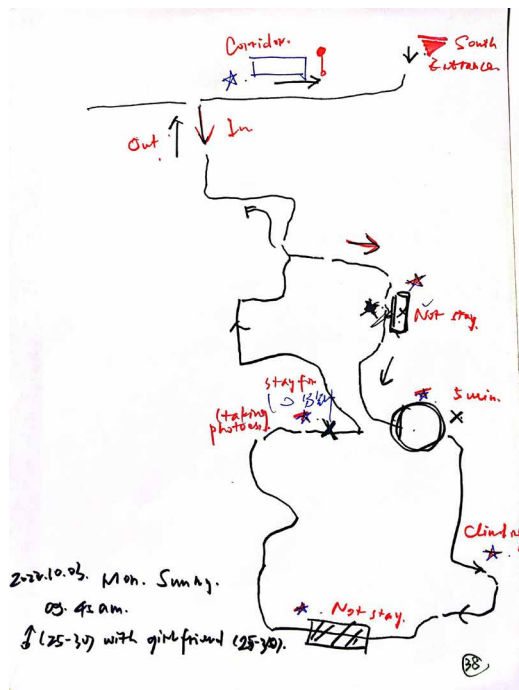 Corridor.
South
Entrance
Out
In
Not stay.
5 min.
stay for
(taking
photoes).
Not stay.
2022.10.03. Mon. Sunny.
09.43 am.
(25-30) with girlfriend (25-30).
38